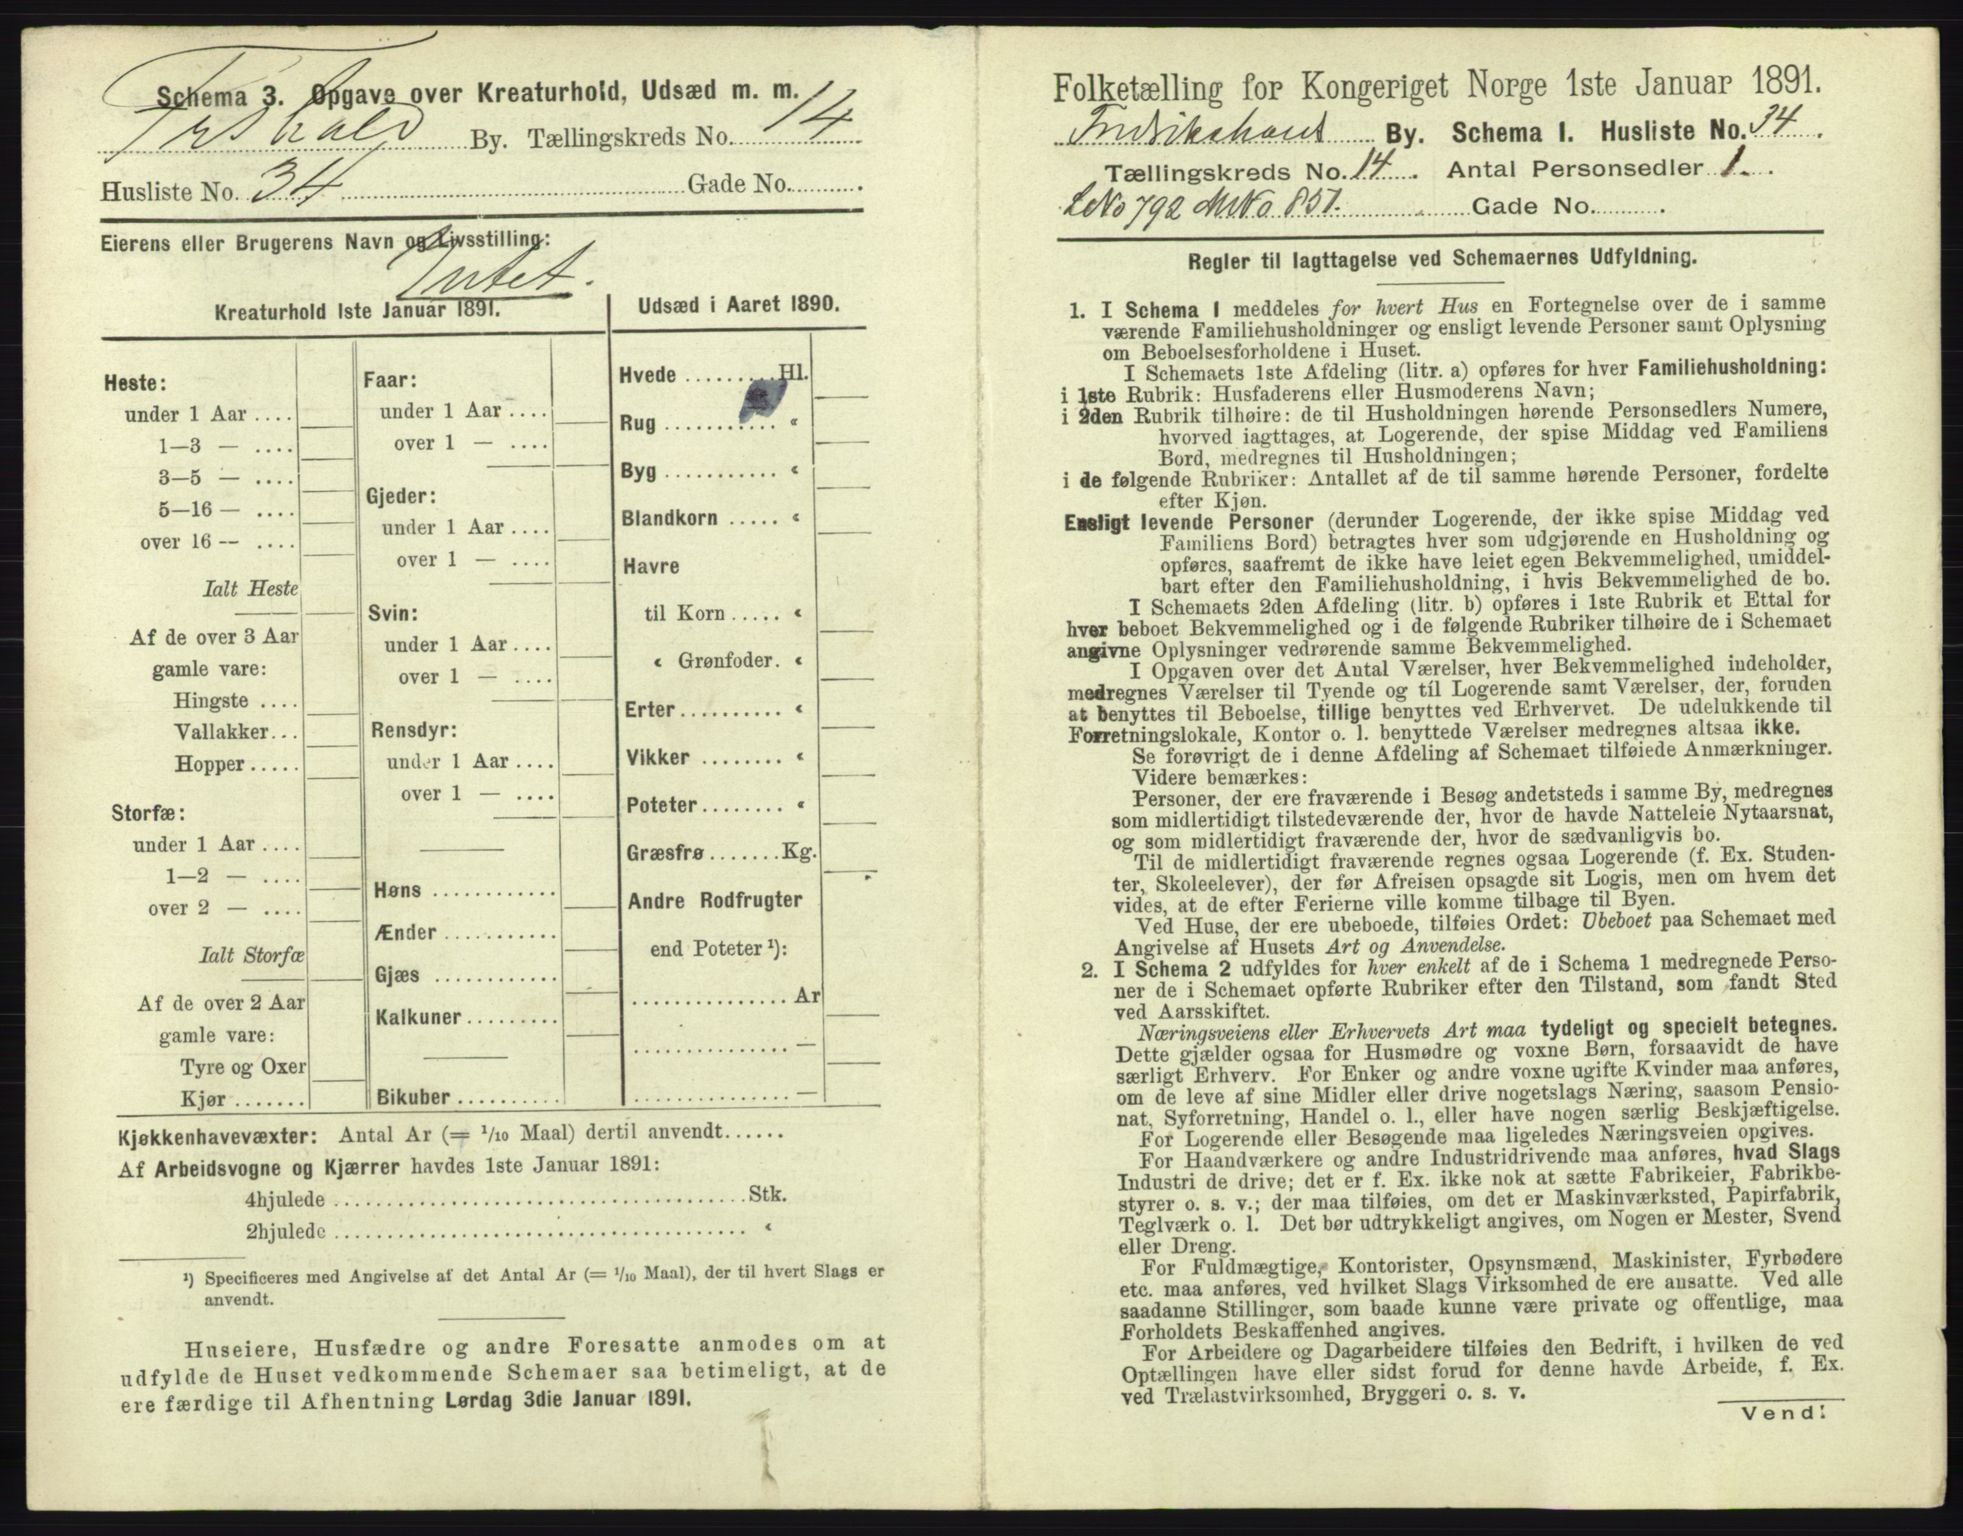 Schema 3. Opgave over Kreaturhold, Udsæd m. m.
Frshald By. Tællingskreds No. 14
Husliste No. 34 Gade No.
Eierens eller Brugerens Navn og Livsstilling:
Intet.
Kreaturhold 1ste Januar 1891.
Heste:
under 1 Aar ....
1—3 — ....
3—5 — ....
5—16 — ....
over 16 — ....
Ialt Heste
Af de over 3 Aar
gamle vare:
Hingste ....
Vallakker...
Hopper.....
Storfæ:
under 1 Aar ....
1—2 — ....
over 2 — ....
Ialt Storfæ
Af de over 2 Aar
gamle vare:
Tyre og Oxer
Kjør .......
Faar:
under 1 Aar ....
over 1 — ....
Gjeder:
under 1 Aar ....
over 1 — ....
Svin:
under 1 Aar ....
over 1 — ....
Rensdyr:
under 1 Aar ....
over 1 — ....
Høns ............
Ænder ...........
Gjæs ............
Kalkuner.........
Bikuber ..........
Udsæd i Aaret 1890.
Hvede .........Hl.
Rug ........... «
Byg ........... «
Blandkorn ..... «
Havre
til Korn ..... «
« Grønfoder. «
Erter.......... «
Vikker ........ «
Poteter........ «
Græsfrø .......Kg.
Andre Rodfrugter
end Poteter ¹):
............... Ar
............... —
............... —
Kjøkkenhavevæxter: Antal Ar (= 1/10 Maal) dertil anvendt......
Af Arbeidsvogne og Kjærrer havdes 1ste Januar 1891:
4hjulede ........................................Stk.
2hjulede ........................................ «
¹) Specificeres med Angivelse af det Antal Ar (= 1/10 Maal), der til hvert Slags er
anvendt.
Huseiere, Husfædre og andre Foresatte anmodes om at
udfylde de Huset vedkommende Schemaer saa betimeligt, at de
ere færdige til Afhentning Lørdag 3die Januar 1891.
Folketælling for Kongeriget Norge 1ste Januar 1891.
Fredrikshald By. Schema 1. Husliste No. 34.
Tællingskreds No. 14. Antal Personsedler 1.
LNo 792 MNo 851. Gade No.
Regler til Iagttagelse ved Schemaernes Udfyldning.
1. I Schema 1 meddeles for hvert Hus en Fortegnelse over de i samme
værende Familiehusholdninger og ensligt levende Personer samt Oplysning
om Beboelsesforholdene i Huset.
I Schemaets 1ste Afdeling (litr. a) opføres for hver Familiehusholdning:
i 1ste Rubrik: Husfaderens eller Husmoderens Navn;
i 2den Rubrik tilhøire: de til Husholdningen hørende Personsedlers Numere,
hvorved iagttages, at Logerende, der spise Middag ved Familiens
Bord, medregnes til Husholdningen;
i de følgende Rubriker: Antallet af de til samme hørende Personer, fordelte
efter Kjøn.
Ensligt levende Personer (derunder Logerende, der ikke spise Middag ved
Familiens Bord) betragtes hver som udgjørende en Husholdning og
opføres, saafremt de ikke have leiet egen Bekvemmelighed, umiddel-
bart efter den Familiehusholdning, i hvis Bekvemmelighed de bo.
I Schemaets 2den Afdeling (litr. b) opføres i 1ste Rubrik et Ettal for
hver beboet Bekvemmelighed og i de følgende Rubriker tilhøire de i Schemaet
angivne Oplysninger vedrørende samme Bekvemmelighed.
I Opgaven over det Antal Værelser, hver Bekvemmelighed indeholder,
medregnes Værelser til Tyende og til Logerende samt Værelser, der, foruden
at benyttes til Beboelse, tillige benyttes ved Erhvervet. De udelukkende til
Forretningslokale, Kontor o. l. benyttede Værelser medregnes altsaa ikke.
Se forøvrigt de i denne Afdeling af Schemaet tilføiede Anmærkninger.
Videre bemærkes:
Personer, der ere fraværende i Besøg andetsteds i samme By, medregnes
som midlertidigt tilstedeværende der, hvor de havde Natteleie Nytaarsnat,
og som midlertidigt fraværende der, hvor de sædvanligvis bo.
Til de midlertidigt fraværende regnes ogsaa Logerende (f. Ex. Studen-
ter, Skoleelever), der før Afreisen opsagde sit Logis, men om hvem det
vides, at de efter Ferierne ville komme tilbage til Byen.
Ved Huse, der ere ubeboede, tilføies Ordet: Ubeboet paa Schemaet med
Angivelse af Husets Art og Anvendelse.
2. I Schema 2 udfyldes for hver enkelt af de i Schema 1 medregnede Perso-
ner de i Schemaet opførte Rubriker efter den Tilstand, som fandt Sted
ved Aarsskiftet.
Næringsveiens eller Erhvervets Art maa tydeligt og specielt betegnes.
Dette gjælder ogsaa for Husmødre og voxne Børn, forsaavidt de have
særligt Erhverv. For Enker og andre voxne ugifte Kvinder maa anføres,
om de leve af sine Midler eller drive nogetslags Næring, saasom Pensio-
nat, Syforretning, Handel o. l., eller have nogen særlig Beskjæftigelse.
For Logerende eller Besøgende maa ligeledes Næringsveien opgives.
For Haandværkere og andre Industridrivende maa anføres, hvad Slags
Industri de drive; det er f. Ex. ikke nok at sætte Fabrikeier, Fabrikbe-
styrer o. s. v.; der maa tilføies, om det er Maskinværksted, Papirfabrik,
Teglværk o. l. Det bør udtrykkeligt angives, om Nogen er Mester, Svend
eller Dreng.
For Fuldmægtige, Kontorister, Opsynsmænd, Maskinister, Fyrbødere
etc. maa anføres, ved hvilket Slags Virksomhed de ere ansatte. Ved alle
saadanne Stillinger, som baade kunne være private og offentlige, maa
Forholdets Beskaffenhed angives.
For Arbeidere og Dagarbeidere tilføies den Bedrift, i hvilken de ved
Optællingen have eller sidst forud for denne havde Arbeide, f. Ex.
ved Trælastvirksomhed, Bryggeri o. s. v.
Vend!